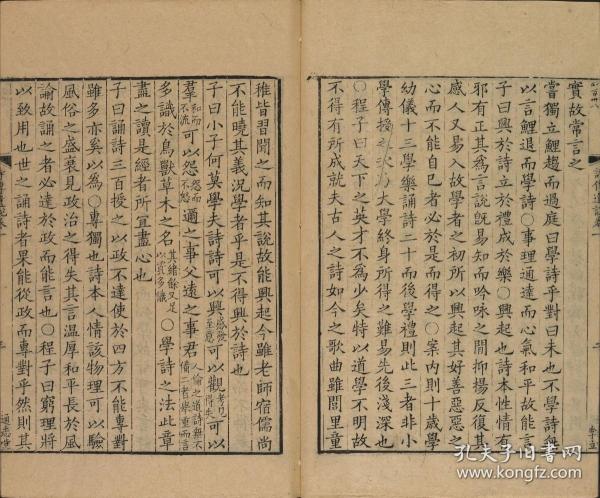 實故常言之
嘗獨立鯉趨而過庭曰學詩乎對曰未也不學詩無
以言鯉退而學詩〇事理通達而心氣和平故能言
子曰興於詩立於禮成於樂〇興起也詩本性情有
邪有正其為言說旣易知而吟咏之間抑揚反復其
感人又易入故學者之初所以興起其好善惡惡之
心而不能自已者必於是而得之〇案內則十歲學
幼儀十三學樂誦詩二十而後學禮則此三者非小
學傳授之次乃大學終身所得之難易先後淺深也
〇程子曰天下之英才不為少矣特以道學不明故
不得有所成就夫古人之詩如今之歌曲雖閭里童
稚皆習聞之而知其說故能興起今雖老師宿儒尚
不能曉其義況學者乎是不得興於詩也
子曰小子何莫學夫詩詩可以興感發志意可以觀考見得失可以
羣和而不流可以怨怨而不怒邇之事父遠之事君人倫之道詩無不備二者舉重而言
多識於鳥獸草木之名其緒餘又足以資多識〇學詩之法此章
盡之讀是經者所宜盡心也
子曰誦詩三百授之以政不達使於四方不能專對
雖多亦奚以為〇專獨也詩本人情該物理可以驗
風俗之盛衰見政治之得失其言溫厚和平長於風
諭故誦之者必達於政而能言也〇程子曰窮理將
以致用也世之誦詩者果能從政而專對乎然則其
通志堂
孔夫子旧书网
www.kongfz.com